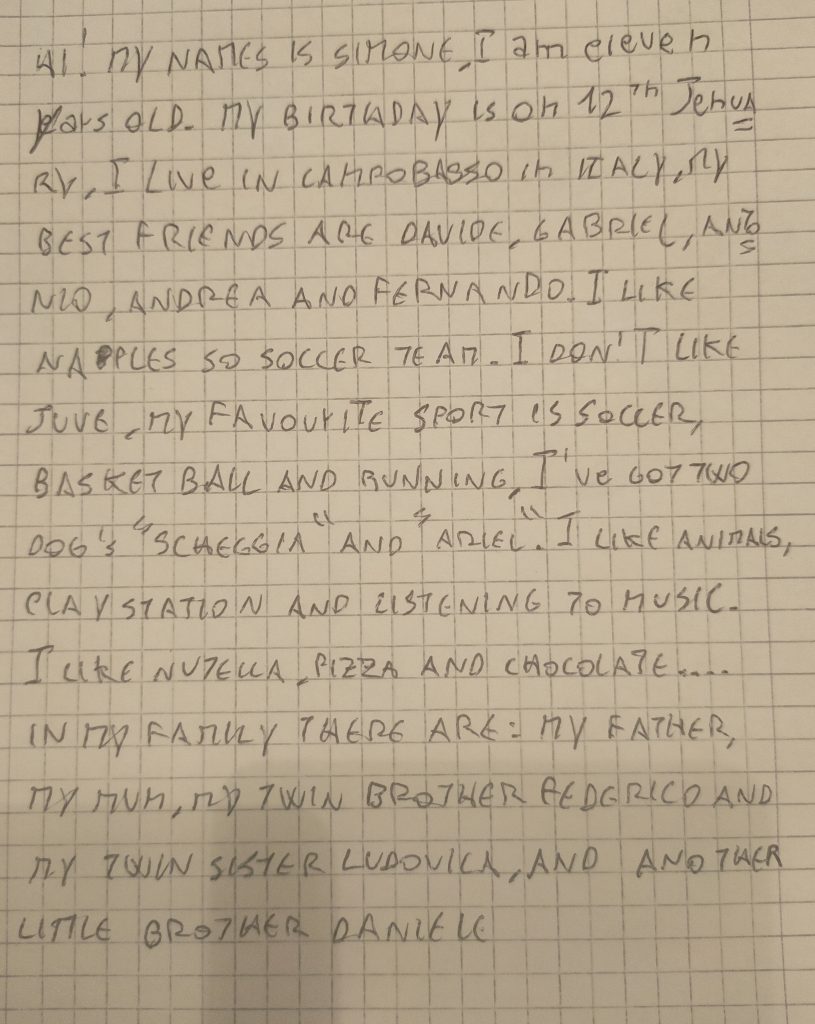 HI! MY NAMES IS SIMONE, I am eleven
years OLD. MY BIRTHDAY is on 12TH Jenua
RY, I Live IN CAMPOBASSO in ITALY, MY
BEST FRIENDS ARE DAVIDE, GABRIEL, ANTO
NIO, ANDREA AND FERNANDO. I LIKE
NAPPLES SO SOCCER TEAM. I DON'T LIKE
JUVE, MY FAVOURITE SPORT IS SOCCER,
BASKET BALL AND RUNNING, I've GOT TWO
DOG's "SCHEGGIA" AND "ARIEL". I LIKE ANIMALS,
PLAY STATION AND LISTENING TO MUSIC.
I LIKE NUTELLA, PIZZA AND CHOCOLATE....
IN MY FAMILY THERE ARE: MY FATHER,
MY MUM, MY TWIN BROTHER FEDERICO AND
MY TWIN SISTER LUDOVICA, AND ANOTHER
LITTLE BROTHER DANIELE